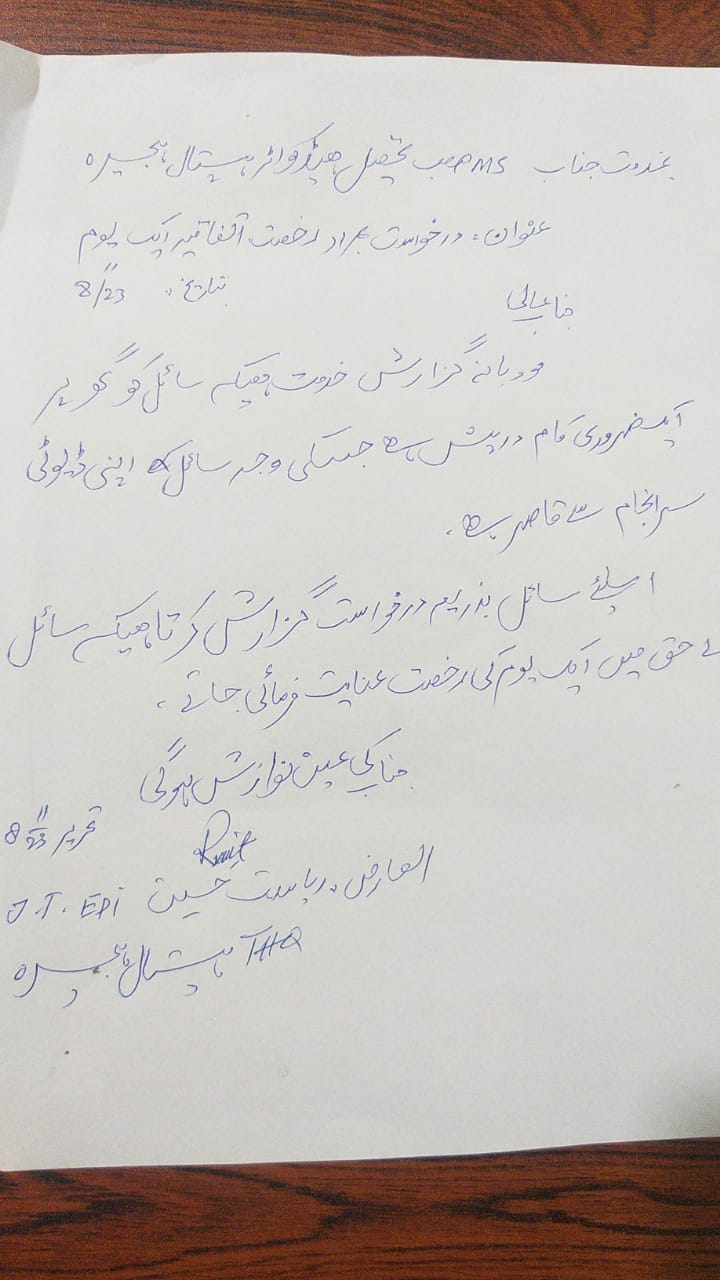 بخدمت جناب MS صاحب تحصیل ہیڈکواٹر ہسپتال ہجیرہ
عنوان: درخواست بمراد رخصت اتفاقیہ ایک یوم
جناب عالی بتاریخ: 8/11/23
مودبانہ گزارش خدمت ہیکہ سائل کو گھر پر
ایک ضروری کام درپیش ہے جسکی وجہ سائل اپنی ڈیوٹی
سرانجام سے قاصر ہے۔
اسلئے سائل بذریعہ درخواست گزارش کرتا ہیکہ سائل
کے حق میں ایک یوم کی رخصت عنایت فرمائی جائے۔
جناب کی عین نوازش ہوگی
تحریر 8/11/23
العارض: ریاست حسین J.T. EPI
THQ ہسپتال ہجیرہ